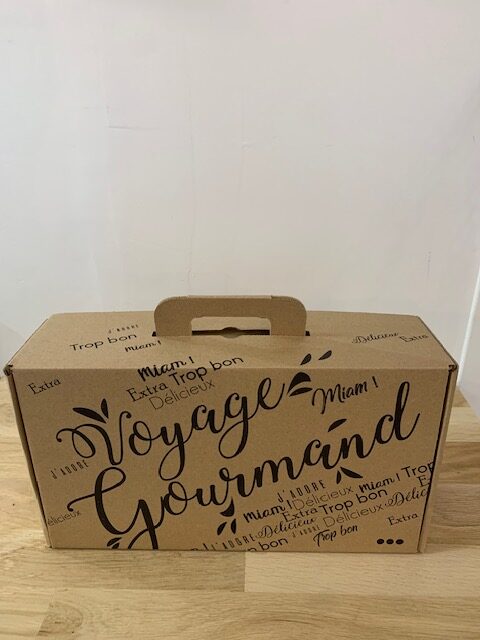 J'ADORE
Trop bon
miam !
Délicieux Extra
Extra
Miam !
Extra Trop bon
Délicieux
Miam !
Voyage
Gourmand
J'ADORE
élicieux
J'ADORE
Miam ! Délicieux Miam ! Trop
Extra Trop bon E
Délicieux J'ADORE Délicieux Délic
J'ADORE
bon
Trop bon
Extra